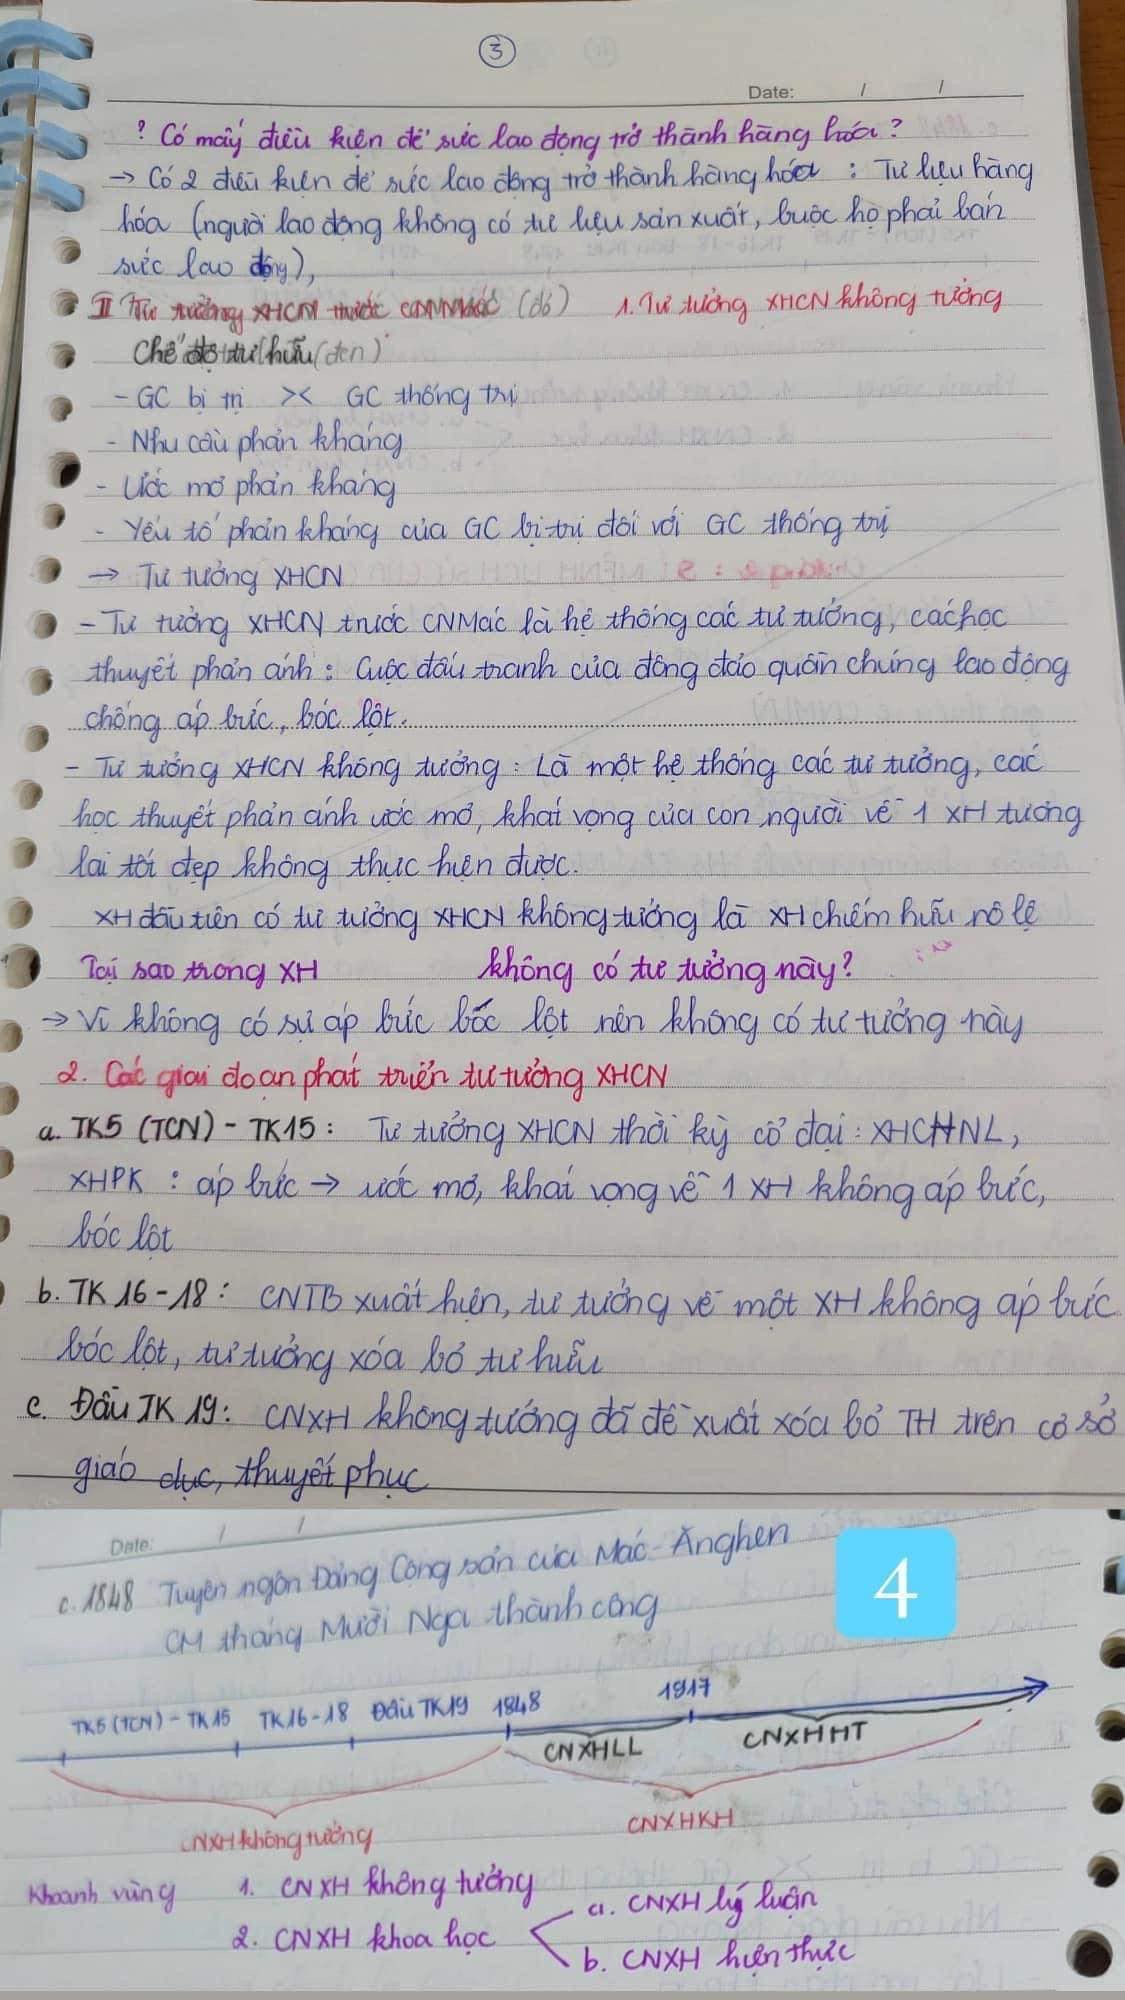 3
Date: / /
? Có mấy điều kiện để sức lao động trở thành hàng hóa?
→ Có 2 điều kiện để sức lao động trở thành hàng hóa : Tư liệu hàng
hóa (người lao động không có tư liệu sản xuất, buộc họ phải bán
sức lao động),
II Tư tưởng XHCN trước CNMác (đỏ) 1. Tư tưởng XHCN không tưởng
Chế độ tư hữu (đen)
- GC bị trị >< GC thống trị
- Nhu cầu phản kháng
- Ước mơ phản kháng
- Yếu tố phản kháng của GC bị trị đối với GC thống trị
→ Tư tưởng XHCN
- Tư tưởng XHCN trước CNMác là hệ thống các tư tưởng, các học
thuyết phản ánh : Cuộc đấu tranh của đông đảo quần chúng lao động
chống áp bức, bóc lột.
- Tư tưởng XHCN không tưởng : Là một hệ thống các tư tưởng, các
học thuyết phản ánh ước mơ, khát vọng của con người về 1 XH tương
lai tốt đẹp không thực hiện được.
XH đầu tiên có tư tưởng XHCN không tưởng là XH chiếm hữu nô lệ
Tại sao trong XH không có tư tưởng này?
→ Vì không có sự áp bức bóc lột nên không có tư tưởng này
2. Các giai đoạn phát triển tư tưởng XHCN
a. TK5 (TCN) - TK15 : Tư tưởng XHCN thời kỳ cổ đại : XHCHNL,
XHPK : áp bức → ước mơ, khát vọng về 1 XH không áp bức,
bóc lột
b. TK 16-18 : CNTB xuất hiện, tư tưởng về một XH không áp bức
bóc lột, tư tưởng xóa bỏ tư hữu
c. Đầu TK 19 : CNXH không tưởng đã đề xuất xóa bỏ TH trên cơ sở
giáo dục, thuyết phục
Date: / /
4
c. 1848 Tuyên ngôn Đảng Cộng sản của Mác-Ănghen
CM tháng Mười Nga thành công
TK5 (TCN) - TK15 TK16-18 Đầu TK19 1848 1917
CNXHLL CNXHHT
CNXH không tưởng CNXHKH
Khoanh vùng 1. CNXH không tưởng
2. CNXH khoa học
a. CNXH lý luận
b. CNXH hiện thực